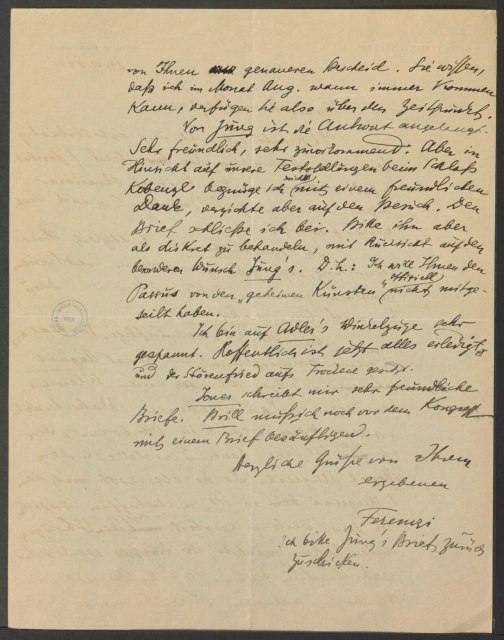 von Ihnen genaueren Bescheid. Sie wissen,
daß ich im Monat Aug. wann immer kommen
kann, verfügen Sie also über den Zeitpunkt.
Von Jung ist die Antwort angelangt.
Sehr freundlich, sehr zuvorkommend. Aber in
Hinsicht auf unsere Feststellungen beim Schloß
Kobenzl begnüge ich mich mit einem freundlichen
Dank, verzichte aber auf den Besuch. Den
Brief schließe ich bei. Bitte ihn aber
als diskret zu behandeln, mit Rücksicht auf den
besonderen Wunsch Jung's. D. h.: Ich will Ihnen den
Passus von den „geheimen Künsten" officiell nicht mitge-
teilt haben.
Ich bin auf Adler's Winkelzüge sehr
gespannt. Hoffentlich ist jetzt alles erledigt
und der Störenfried aufs Trockene gesetzt.
Jones schreibt mir sehr freundliche
Briefe. Brill muß ich noch vor dem Kongreß
mit einem Brief besänftigen.
Herzliche Grüße von Ihrem
ergebenen
Ferenczi
Ich bitte Jung's Brief zurück
zuschicken.